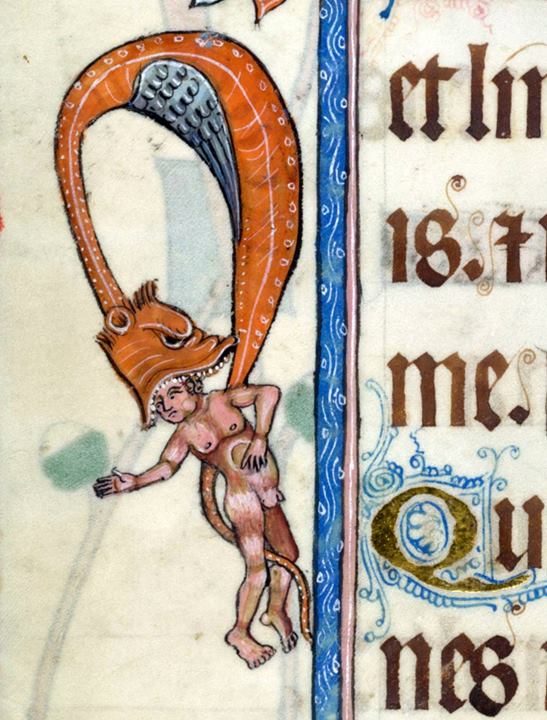 et lin
is. 
me.
Qu
nes